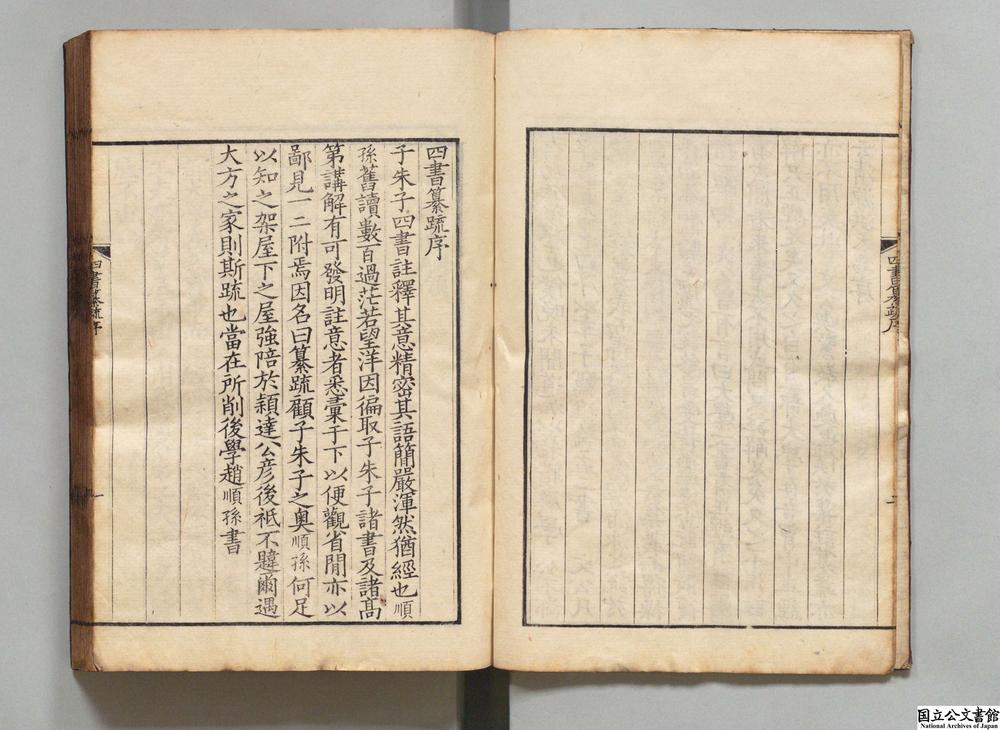 四書纂疏序
四書纂疏序
子朱子四書註釋其意精密其語簡嚴渾然猶經也順
孫舊讀數百過茫若望洋因徧取子朱子諸書及諸髙
第講解有可發明註意者悉彙于下以便觀省閒亦以
鄙見一二附焉因名曰纂疏顧子朱子之奧順孫何足
以知之架屋下之屋強陪於穎達公彦後祗不韙爾遇
大方之家則斯疏也當在所削後學趙順孫書
四書纂疏序
一
国立公文書館
National Archives of Japan